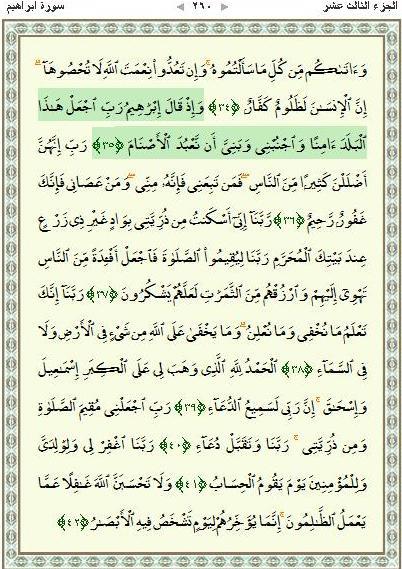 الجزء الثالث عشر ٢٦٠ سورة ابراهيم
وَءَاتَىٰكُم مِّن كُلِّ مَا سَأَلْتُمُوهُ ۚ وَإِن تَعُدُّوا۟ نِعْمَتَ ٱللَّهِ لَا تُحْصُوهَآ ۗ
إِنَّ ٱلْإِنسَـٰنَ لَظَلُومٌ كَفَّارٌ ﴿٣٤﴾ وَإِذْ قَالَ إِبْرَٰهِيمُ رَبِّ ٱجْعَلْ هَـٰذَا
ٱلْبَلَدَ ءَامِنًا وَٱجْنُبْنِى وَبَنِىَّ أَن نَّعْبُدَ ٱلْأَصْنَامَ ﴿٣٥﴾ رَبِّ إِنَّهُنَّ
أَضْلَلْنَ كَثِيرًا مِّنَ ٱلنَّاسِ ۖ فَمَن تَبِعَنِى فَإِنَّهُۥ مِنِّى ۖ وَمَنْ عَصَانِى فَإِنَّكَ
غَفُورٌ رَّحِيمٌ ﴿٣٦﴾ رَّبَّنَآ إِنِّىٓ أَسْكَنتُ مِن ذُرِّيَّتِى بِوَادٍ غَيْرِ ذِى زَرْعٍ
عِندَ بَيْتِكَ ٱلْمُحَرَّمِ رَبَّنَا لِيُقِيمُوا۟ ٱلصَّلَوٰةَ فَٱجْعَلْ أَفْـِٔدَةً مِّنَ ٱلنَّاسِ
تَهْوِىٓ إِلَيْهِمْ وَٱرْزُقْهُم مِّنَ ٱلثَّمَرَٰتِ لَعَلَّهُمْ يَشْكُرُونَ ﴿٣٧﴾ رَبَّنَآ إِنَّكَ
تَعْلَمُ مَا نُخْفِى وَمَا نُعْلِنُ ۗ وَمَا يَخْفَىٰ عَلَى ٱللَّهِ مِن شَىْءٍ فِى ٱلْأَرْضِ وَلَا
فِى ٱلسَّمَآءِ ﴿٣٨﴾ ٱلْحَمْدُ لِلَّهِ ٱلَّذِى وَهَبَ لِى عَلَى ٱلْكِبَرِ إِسْمَـٰعِيلَ
وَإِسْحَـٰقَ ۚ إِنَّ رَبِّى لَسَمِيعُ ٱلدُّعَآءِ ﴿٣٩﴾ رَبِّ ٱجْعَلْنِى مُقِيمَ ٱلصَّلَوٰةِ
وَمِن ذُرِّيَّتِى ۚ رَبَّنَا وَتَقَبَّلْ دُعَآءِ ﴿٤٠﴾ رَبَّنَا ٱغْفِرْ لِى وَلِوَٰلِدَىَّ
وَلِلْمُؤْمِنِينَ يَوْمَ يَقُومُ ٱلْحِسَابُ ﴿٤١﴾ وَلَا تَحْسَبَنَّ ٱللَّهَ غَـٰفِلًا عَمَّا
يَعْمَلُ ٱلظَّـٰلِمُونَ ۚ إِنَّمَا يُؤَخِّرُهُمْ لِيَوْمٍ تَشْخَصُ فِيهِ ٱلْأَبْصَـٰرُ ﴿٤٢﴾